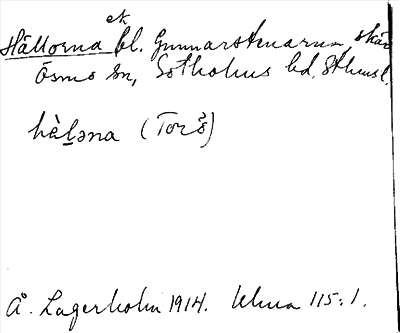 Hällorna ek bl. Gunnarstenarna, skär
Ösmo sn, Sotholms hd, Sthmsl.
hàḷəna (Torö)
Å. Lagerholm 1914. 115:1.